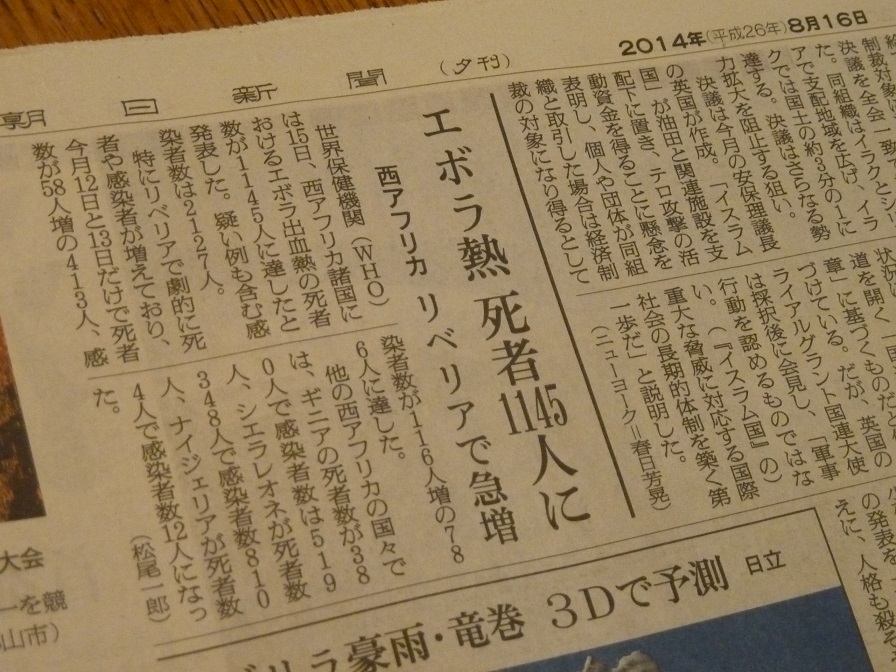 朝日新聞
(夕刊)
2014年(平成26年)8月16日
制裁対象
決議を全会一致
た。同組織はイラクとシ
アで支配地域を広げ、イラ
クでは国土の約3分の1に
達する。決議はさらなる勢
力拡大を阻止する狙い。
決議は今月の安保理議長
の英国が作成。「イスラム
国」が油田と関連施設を支
配下に置き、テロ攻撃の活
動資金を得ることに懸念を
表明し、個人や団体が同組
織と取引した場合は経済制
裁の対象になり得るとして
道を開く
章」に基づくものだと
づけている。だが、英国の
ライアルグラント国連大使
は採択後に会見し、「軍事
行動を認めるものではな
い。(『イスラム国』の)
重大な脅威に対応する国際
社会の長期的体制を築く第
一歩だ」と説明した。
(ニューヨーク=春日芳晃)
エボラ熱 死者1145人に
西アフリカ リベリアで急増
世界保健機関(WHO)
は15日、西アフリカ諸国に
おけるエボラ出血熱の死者
数が1145人に達したと
発表した。疑い例も含む感
染者数は2127人。
特にリベリアで劇的に死
者や感染者が増えており、
今月12日と13日だけで死者
数が58人増の413人、感
染者数が116人増の78
6人に達した。
他の西アフリカの国々で
は、ギニアの死者数が38
0人で感染者数は519
人、シエラレオネが死者数
348人で感染者数810
人、ナイジェリアが死者数
4人で感染者数12人になっ
た。
(松尾一郎)
の発表を
えに、人格も殺
ゲリラ豪雨・竜巻 3Dで予測
日立
大会
ーを競
山市)